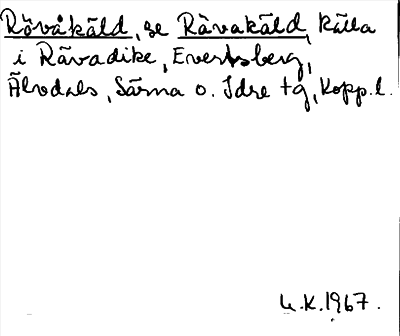 Rövåkäld, se Råvakäld, källa
i Råvadike, Evertsberg,
Älvdals, Särna o. Idre tg, Kopp.l.
K.1967.